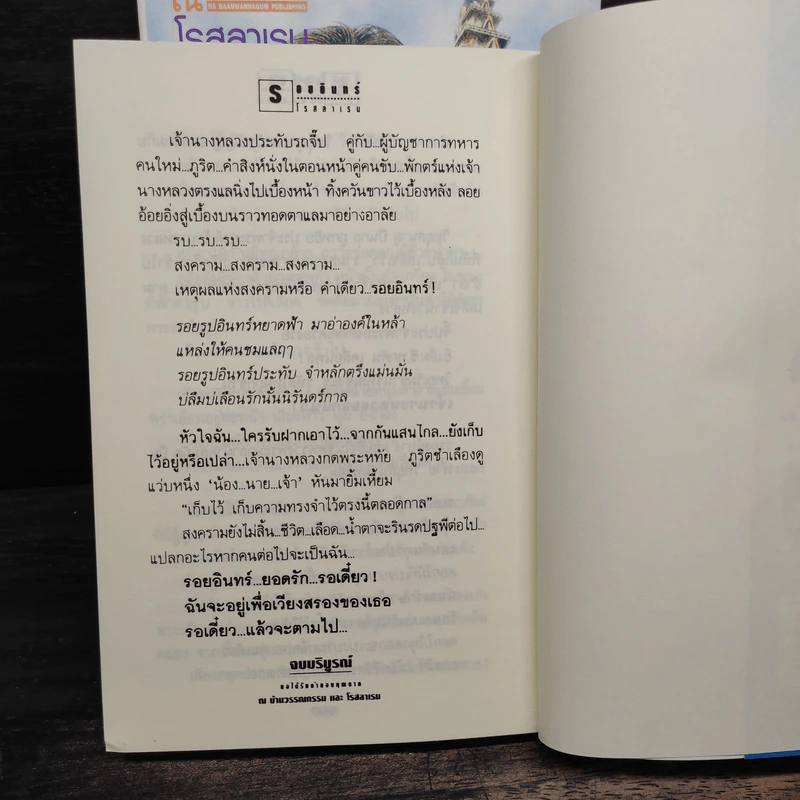 ใน
NA BAANWANNAGUM PUBLISHING
โรสลาเรน
รอยอินทร์
โรสลาเรน
เจ้านางหลวงประทับรถจี๊ป คู่กับ...ผู้บัญชาการทหาร
คนใหม่...ภูริต...คำสิงห์นั่งในตอนหน้าคู่คนขับ...พักตร์แห่งเจ้า
นางหลวงตรงแลนิ่งไปเบื้องหน้า ทิ้งควันขาวไว้เบื้องหลัง ลอย
อ้อยอิ่งสู่เบื้องบนราวทอดตาแลมาอย่างอาลัย
รบ...รบ...รบ...
สงคราม...สงคราม...สงคราม...
เหตุผลแห่งสงครามหรือ คำเดียว...รอยอินทร์!
รอยรูปอินทร์หยาดฟ้า มาอ่าองค์ในหล้า
แหล่งให้คนชมแลฤๅ
รอยรูปอินทร์ประทับ จำหลักตรึงแม่นมั่น
บ่ลืมบ่เลือนรักนั้นนิรันดร์กาล
หัวใจฉัน...ใครรับฝากเอาไว้...จากกันแสนไกล...ยังเก็บ
ไว้อยู่หรือเปล่า...เจ้านางหลวงกดพระหทัย ภูริตชำเลืองดู
แว่บหนึ่ง ‘น้อง...นาย...เจ้า’ หันมายิ้มเหี้ยม
“เก็บไว้ เก็บความทรงจำไว้ตรงนี้ตลอดกาล”
สงครามยังไม่สิ้น...ชีวิต...เลือด...น้ำตาจะรินรดปฐพีต่อไป...
แปลกอะไรหากคนต่อไปจะเป็นฉัน...
รอยอินทร์...ยอดรัก...รอเดี๋ยว!
ฉันจะอยู่เพื่อเวียงสรองของเธอ
รอเดี๋ยว...แล้วจะตามไป...
จบบริบูรณ์
ขอได้รับคำขอบคุณจาก
ณ บ้านวรรณกรรม และ โรสลาเรน